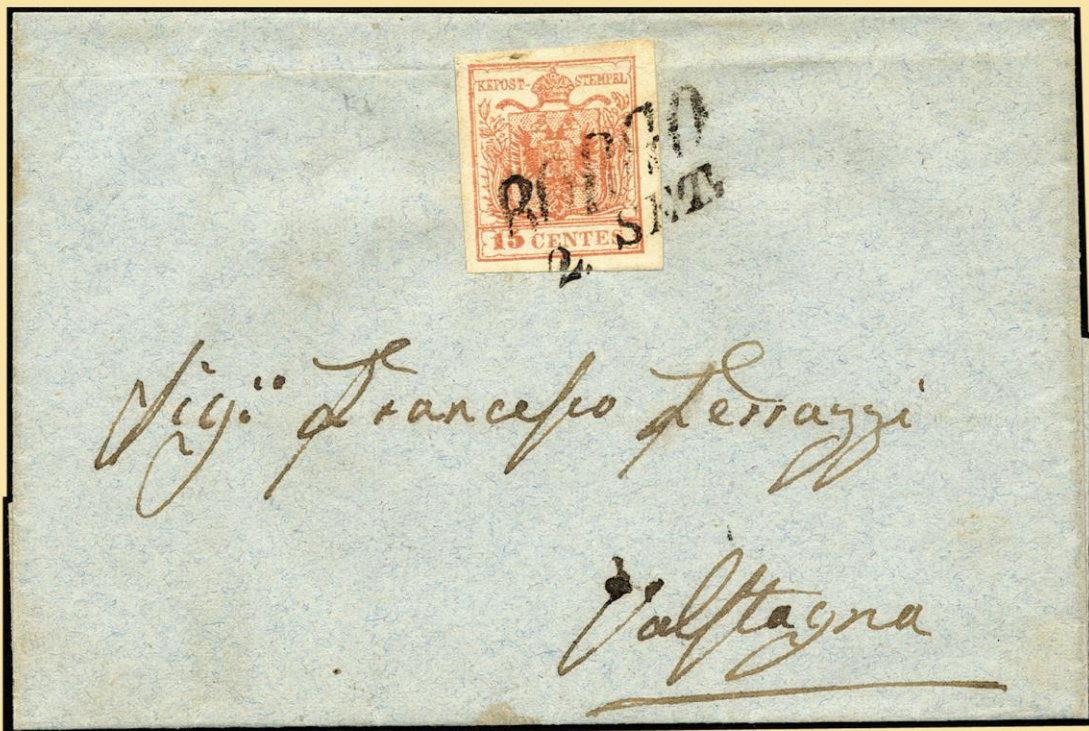 KKPOST-STEMPEL
15 CENTES
2 SET.
Sig:r Francesco Ferrazzi
Valstagna